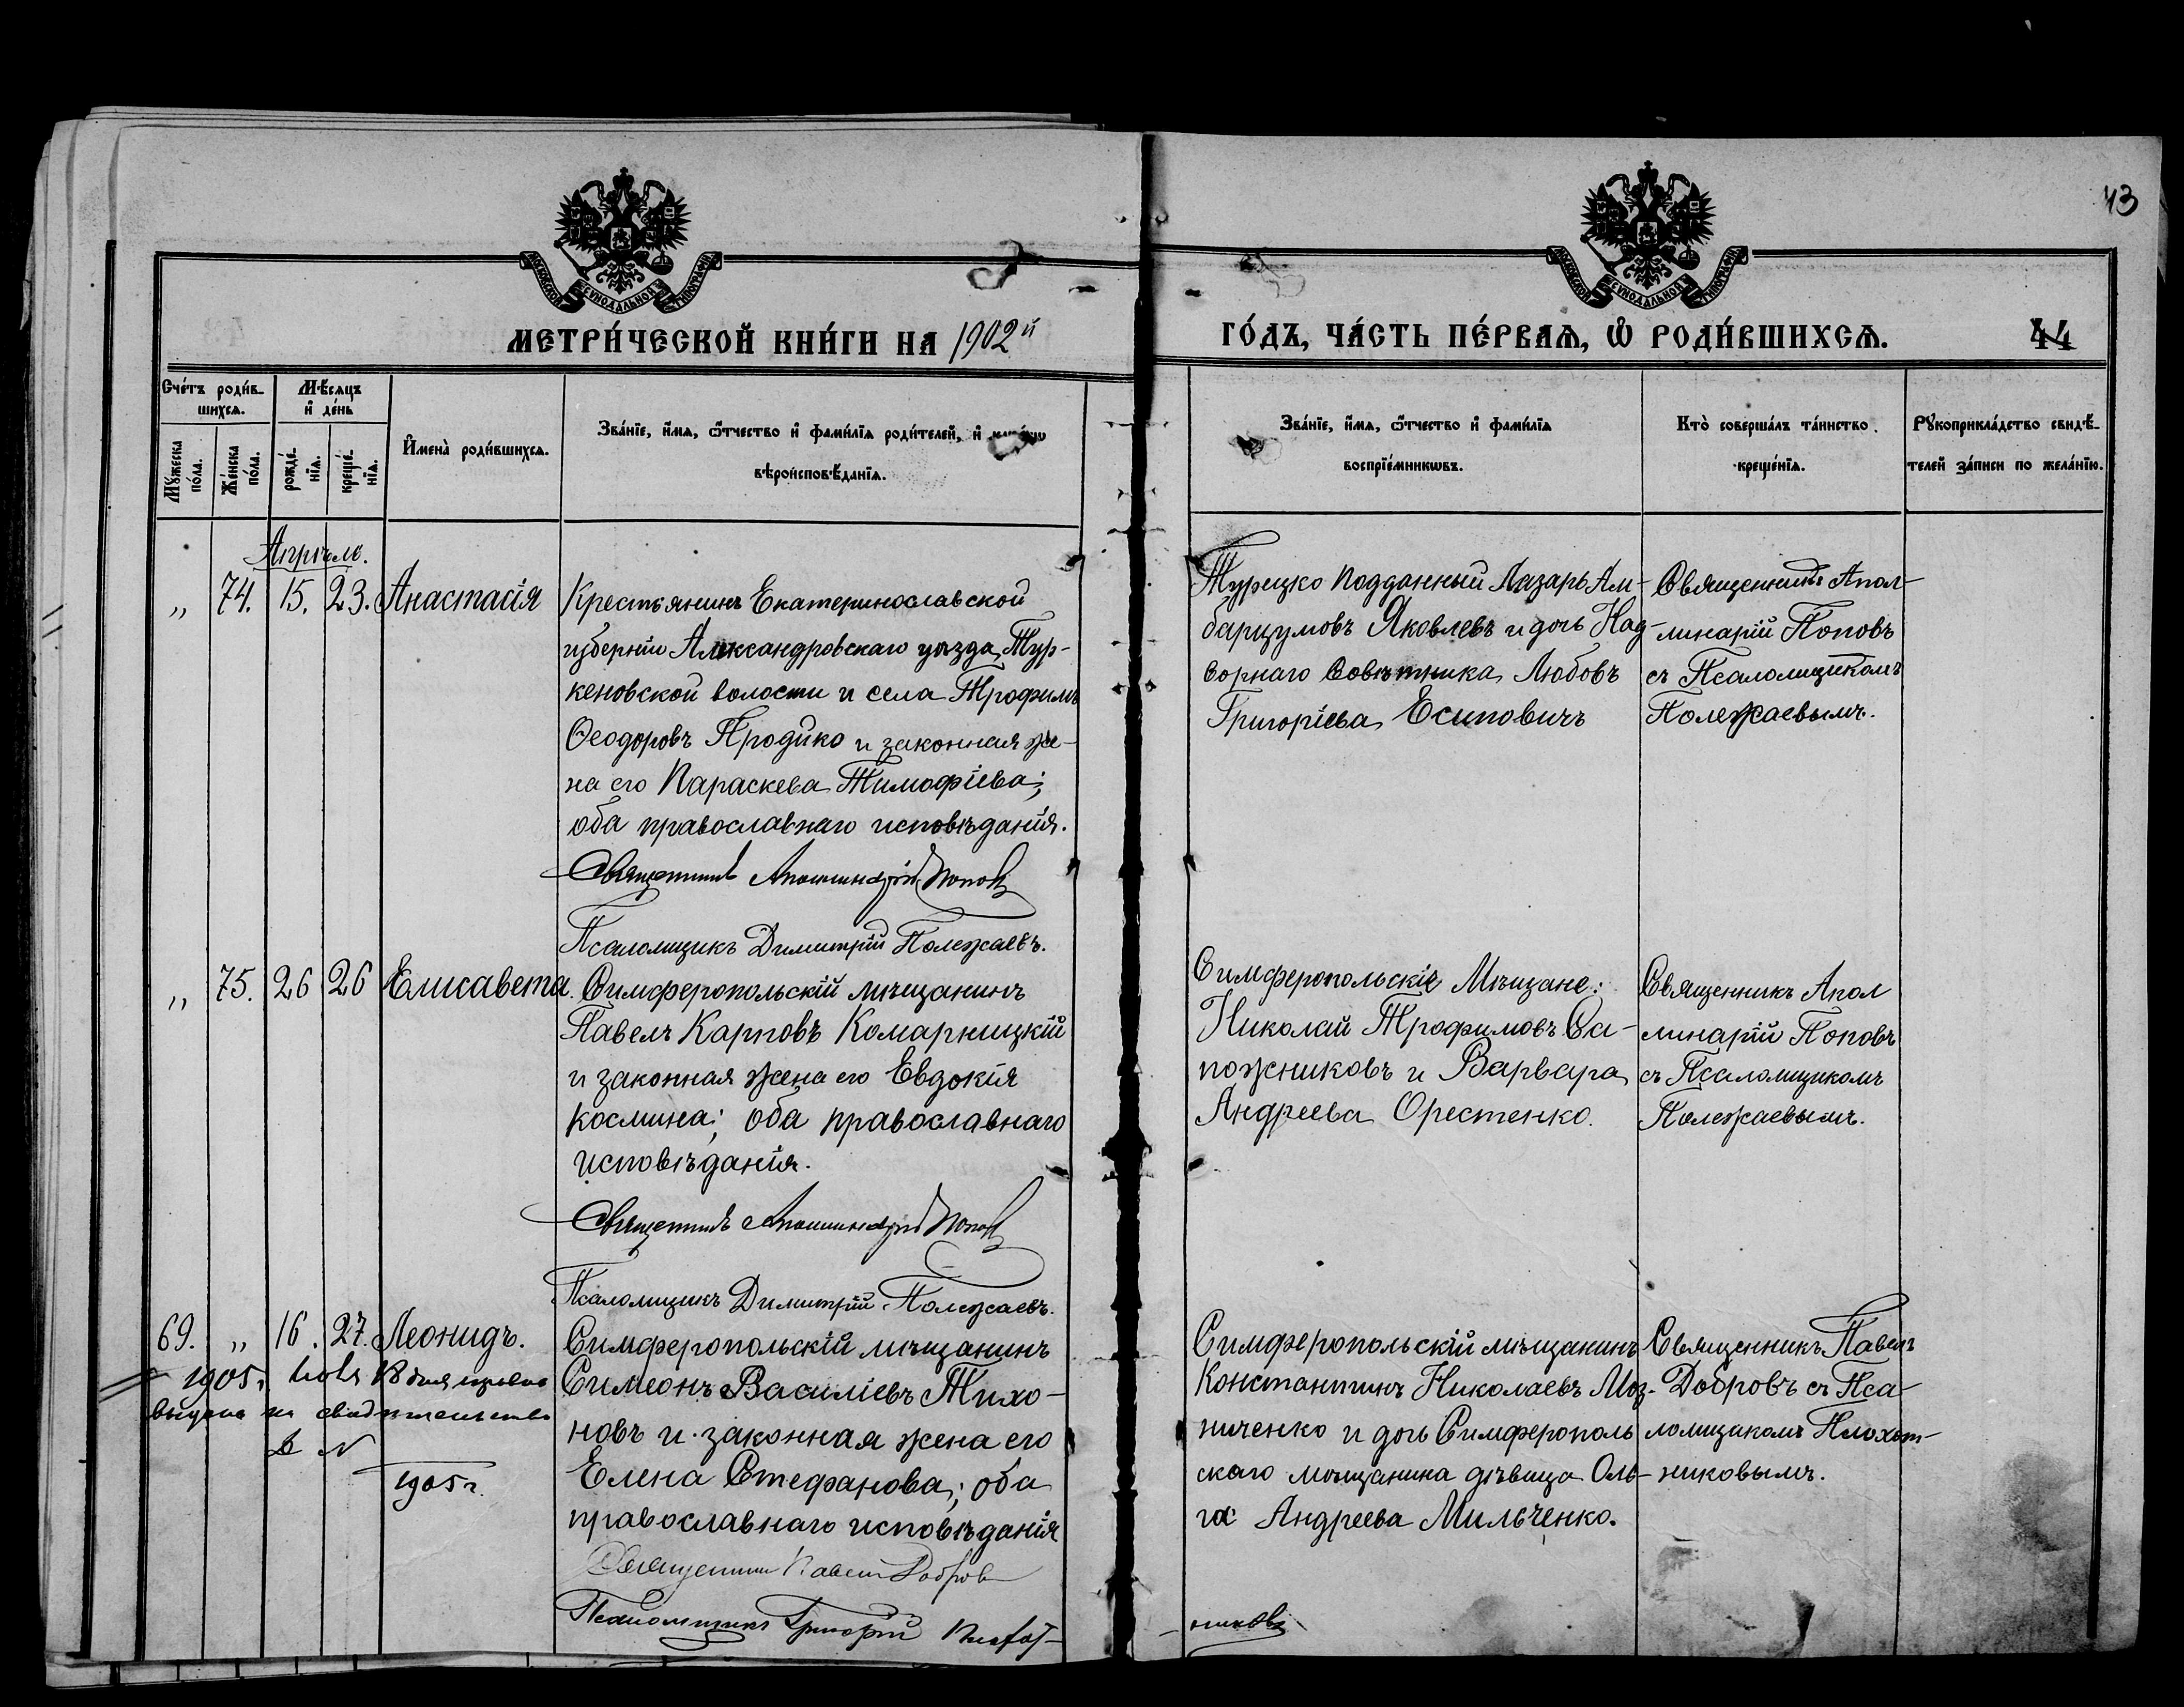 43
МОСКОВСКОЙ СѴНОДАЛЬНОЙ ТИПОГРАФІИ
МОСКОВСКОЙ СѴНОДАЛЬНОЙ ТИПОГРАФІИ
МЕТРИ́ЧЕСКОЙ КНИ́ГИ НА 1902й
ГО́ДЪ, ЧА́СТЬ ПЕ́РВАѦ, Ѡ҆ РОДИ́ВШИХСѦ.
44
Сче́тъ роди́в-
шихсѧ.
Мѣ́сѧцъ
и҆ де́нь
Мꙋ́жеска по́ла.
Же́нска по́ла.
рожде́-
нїѧ.
креще́-
нїѧ.
И҆мена̀ роди́вшихсѧ.
Зва́нїе, и҆́мѧ, ѻ҆́тчество и҆ фами́лїѧ роди́телей, и҆
вѣроисповѣ́данїѧ.
Зва́нїе, и҆́мѧ, ѻ҆́тчество и҆ фами́лїѧ
воспрїе́мникѡвъ.
Кто̀ соверша́лъ та́инство
креще́нїѧ.
Рꙋкоприкла́дство свидѣ́-
телей за́писи по жела́нїю.
Апрѣль.
„ 74. 15. 23. Анастасія
Крестьянинъ Екатеринославской
губерніи Александровскаго уѣзда, Тур-
кеновской волости и села Трофимъ
Ѳеодоровъ Продико и законная же-
на его Параскева Тимофіева;
оба православнаго исповѣданія.
Священникъ Аполлинарій Поповъ
Псаломщикъ Димитрій Полежаевъ.
Турецко подданный Лазарь Ам-
барцумовъ Яковлевъ и дочь Над-
ворнаго Совѣтника Любовъ
Григоріева Есиповичъ
Священникъ Апол-
линарій Поповъ
съ Псаломщикомъ
Полежаевымъ.
„ 75. 26 26 Елисавета.
Симферопольскій мѣщанинъ
Павелъ Карповъ Комарницкій
и законная жена его Евдокія
Космина; оба православнаго
исповѣданія.
Священникъ Аполлинарій Поповъ
Псаломщикъ Димитрій Полежаевъ.
Симферопольскіе Мѣщане:
Николай Трофимовъ Са-
пожниковъ и Варвара
Андреева Орестенко.
Священникъ Апол
линарій Поповъ
съ Псаломщикомъ
Полежаевымъ.
69. „ 16. 27. Леонидъ.
1905 г. ноя 18 дня
выдано свидѣтельство
№
1905 г.
Симферопольскій мѣщанинъ
Симеонъ Василіевъ Тихо-
новъ и законная жена его
Елена Стефанова; оба
православнаго исповѣданія
Священникъ Павелъ Добровъ
Псаломщикъ Григорій Плохот-
никовъ
Симферопольскій мѣщанинъ
Константинъ Николаевъ Моз-
ниченко и дочь Симферополь
скаго мѣщанина дѣвица Оль-
га Андреева Мильченко.
Священникъ Павелъ
Добровъ съ Пса-
ломщикомъ Плохот-
никовымъ.